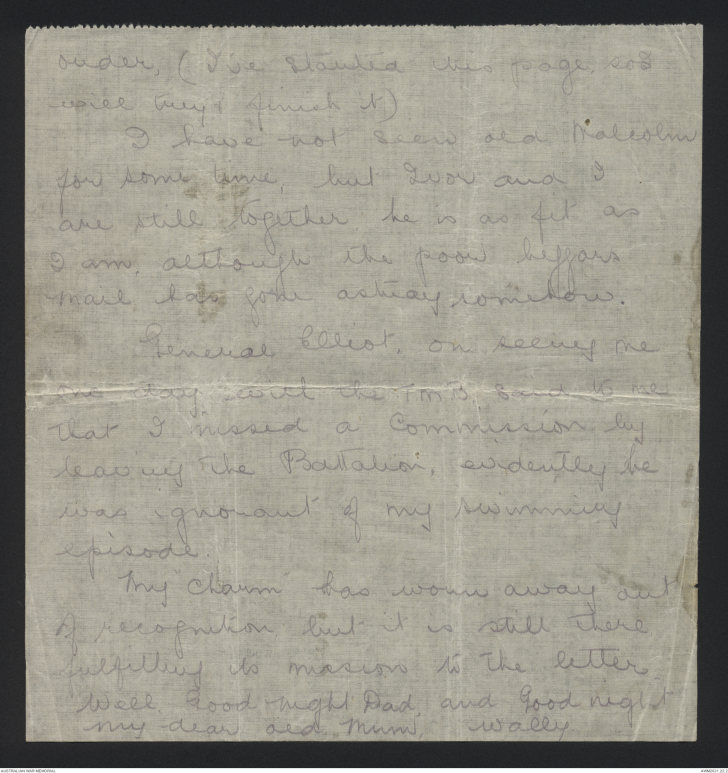 order, (I've started this page, so I
will try & finish it)
I have not seen old Malcolm
for some time, but Ivor and I
are still together he is as fit as
I am, although the poor beggars
mail has gone astray somehow.
General Elliot, on seeing me
one day with the T.M.B. said to me
that I missed a Commission by
leaving the Battalion, evidently he
was ignorant of my swimming
episode.
My "charm" has worn away out
of recognition, but it is still there
fulfilling its mission to the letter.
Well Good-night Dad, and Good night
my dear old Mum, Wally
AUSTRALIAN WAR MEMORIAL